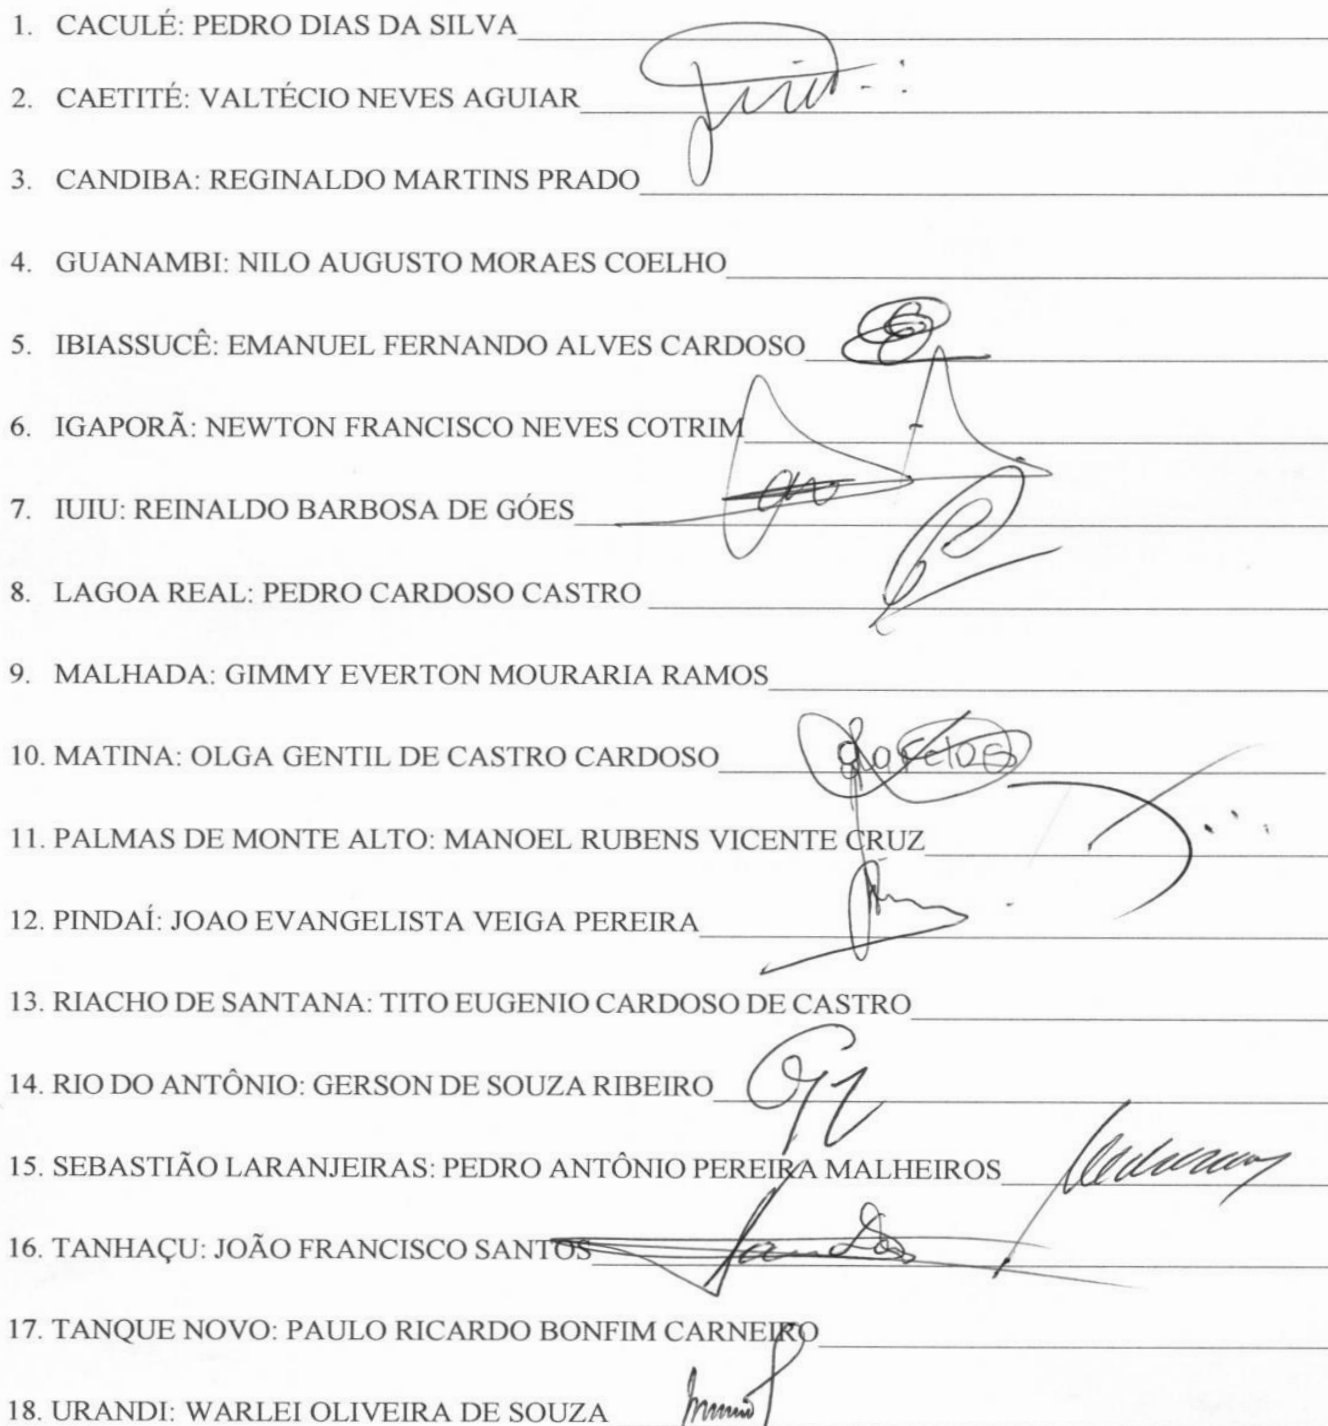 1. CACULÉ: PEDRO DIAS DA SILVA
2. CAETITÉ: VALTÉCIO NEVES AGUIAR
3. CANDIBA: REGINALDO MARTINS PRADO
4. GUANAMBI: NILO AUGUSTO MORAES COELHO
5. IBIASSUCÊ: EMANUEL FERNANDO ALVES CARDOSO
6. IGAPORÃ: NEWTON FRANCISCO NEVES COTRIM
7. IUIU: REINALDO BARBOSA DE GÓES
8. LAGOA REAL: PEDRO CARDOSO CASTRO
9. MALHADA: GIMMY EVERTON MOURARIA RAMOS
10. MATINA: OLGA GENTIL DE CASTRO CARDOSO
11. PALMAS DE MONTE ALTO: MANOEL RUBENS VICENTE CRUZ
12. PINDAÍ: JOAO EVANGELISTA VEIGA PEREIRA
13. RIACHO DE SANTANA: TITO EUGENIO CARDOSO DE CASTRO
14. RIO DO ANTÔNIO: GERSON DE SOUZA RIBEIRO
15. SEBASTIÃO LARANJEIRAS: PEDRO ANTÔNIO PEREIRA MALHEIROS
16. TANHAÇU: JOÃO FRANCISCO SANTOS
17. TANQUE NOVO: PAULO RICARDO BONFIM CARNEIRO
18. URANDI: WARLEI OLIVEIRA DE SOUZA